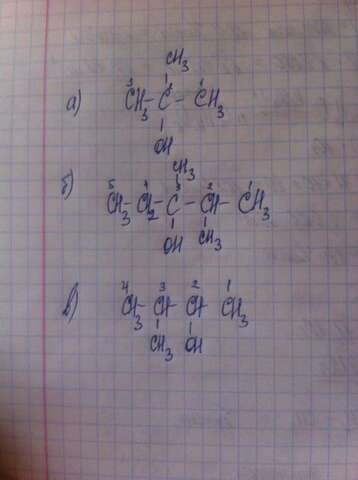 CH₃
а) ³CH₃ – ²C – ¹CH₃
OH
CH₃
б) ⁵CH₃ – ⁴CH₂ – ³C – ²CH – ¹CH₃
OH CH₃
в) ⁴CH₃ – ³CH – ²CH – ¹CH₃
CH₃ OH